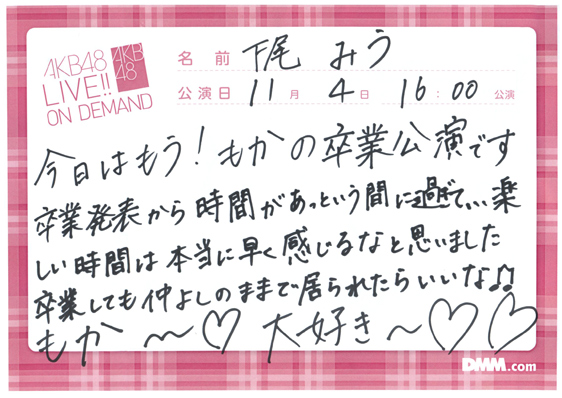 AKB48
LIVE!!
ON DEMAND
AKB
48
名前 下尾 みう
公演日 11月 4日 16:00 公演
今日はもう！もかの卒業公演です
卒業発表から時間があっという間に過ぎて、、、楽
しい時間は本当に早く感じるなと思いました
卒業しても仲よしのままで居られたらいいな♫
もか〜♡ 大好き〜♡♡
DMM.com